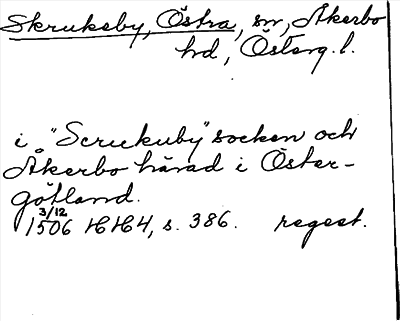 Skrukeby, Östra, sn, Åkerbo
hd, Österg. l.
i "Scrukuby" socken och
Åkerbo härad i Öster-
götland.
3/12
1506 HH4, s. 386. regest.